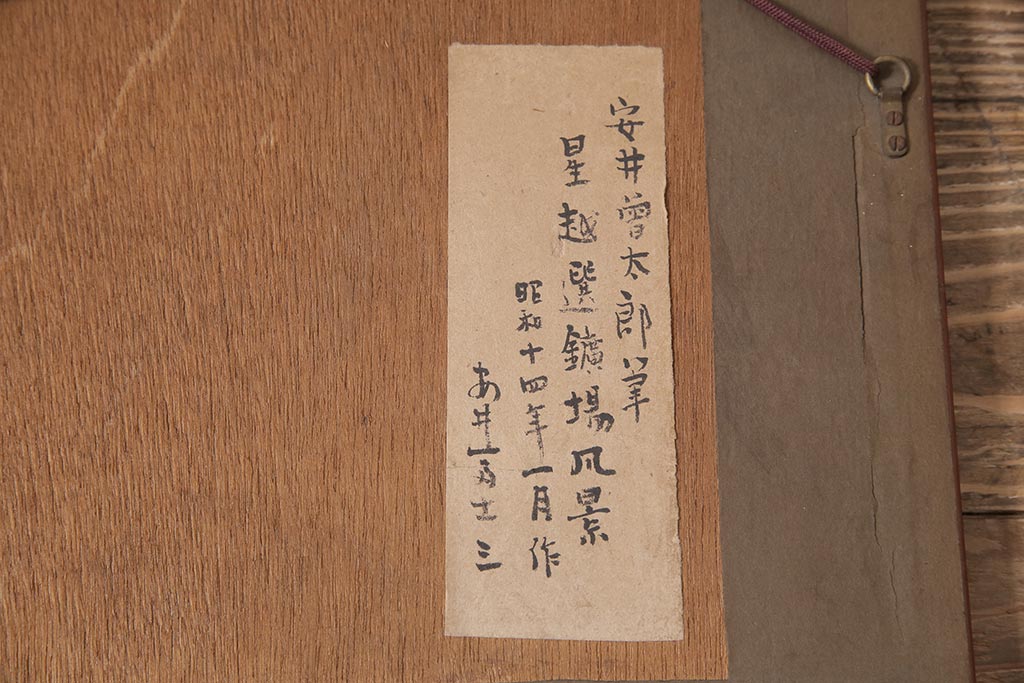 安井曾太郎筆
星越選鑛場風景
昭和十四年一月作